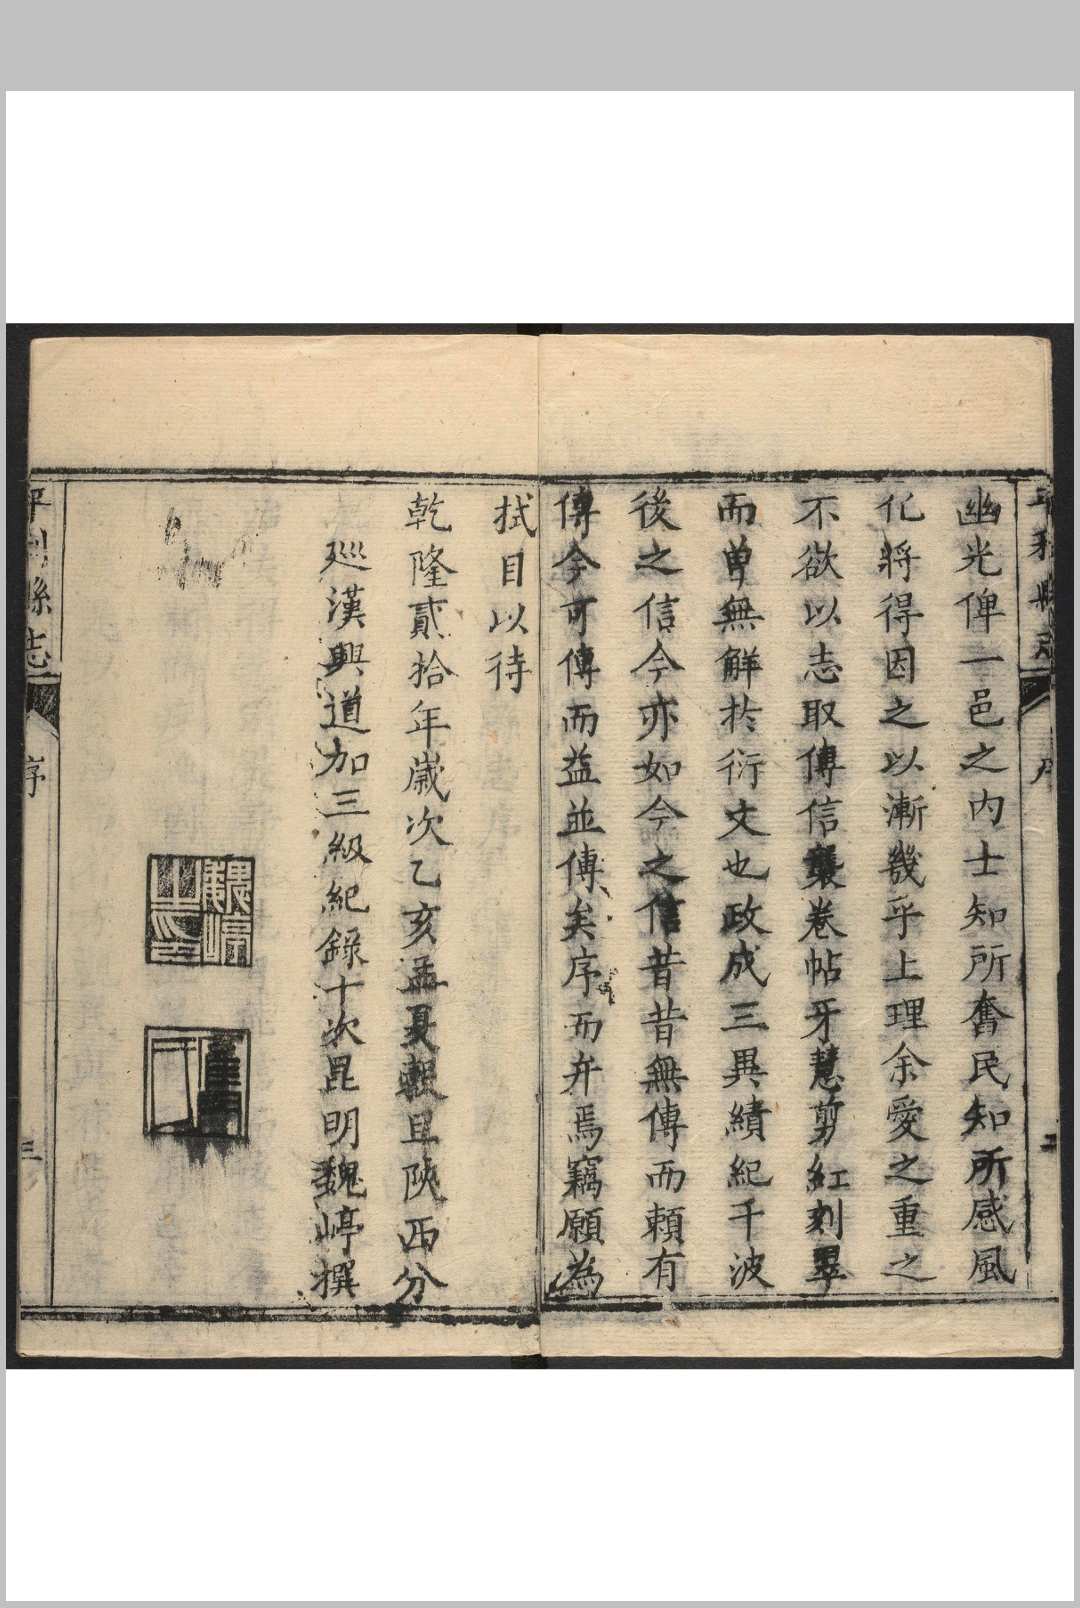 平利縣志
序
二
幽光俾一邑之内士知所奮民知所感風
化將得因之以漸幾乎上理余愛之重之
不欲以志取傳信襲卷帖牙慧剪紅刻翠
而曽無解於衍文也政成三異績紀千波
後之信今亦如今之信昔昔無傳而賴有
傳今可傳而益並傳矣序而弁焉竊願為
拭目以待
乾隆貳拾年歲次乙亥孟夏穀旦陝西分
廵漢興道加三級紀錄十次昆明魏㟭撰
魏㟭之印
平利縣志
序
三